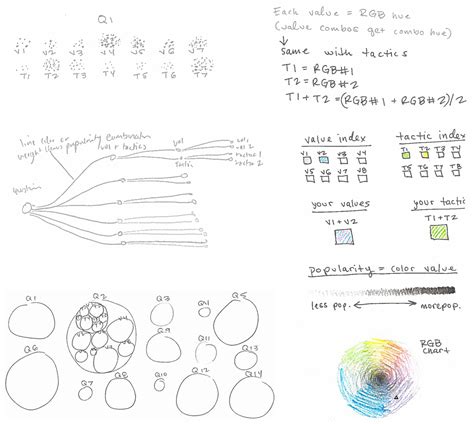 Q1
V1 V2 V3 V4 V5 V6 V7
T1 T2 T3 T4 T5 T6 T7
Each value = RGB hue
(value combos get combo hue)
same with tactics
T1 = RGB#1
T2 = RGB#2
T1 + T2 = (RGB#1 + RGB#2)/2
line color or
weight shows popularity combination
val + tactics
question
val
tactic
val 1
val 2
tactic 1
tactic 2
value index
V1 V2 V3 V4
V5 V6 V7 V8
tactic index
T1 T2 T3 T4
T5 T6 T7 T8
your values
V1 + V2
your tactic
T1+T2
popularity = color value
less pop. more pop.
RGB
chart
Q1 Q2 Q3 Q4 Q5
Q6 Q7 Q8 Q9 Q10 Q11 Q12 Q13 Q14